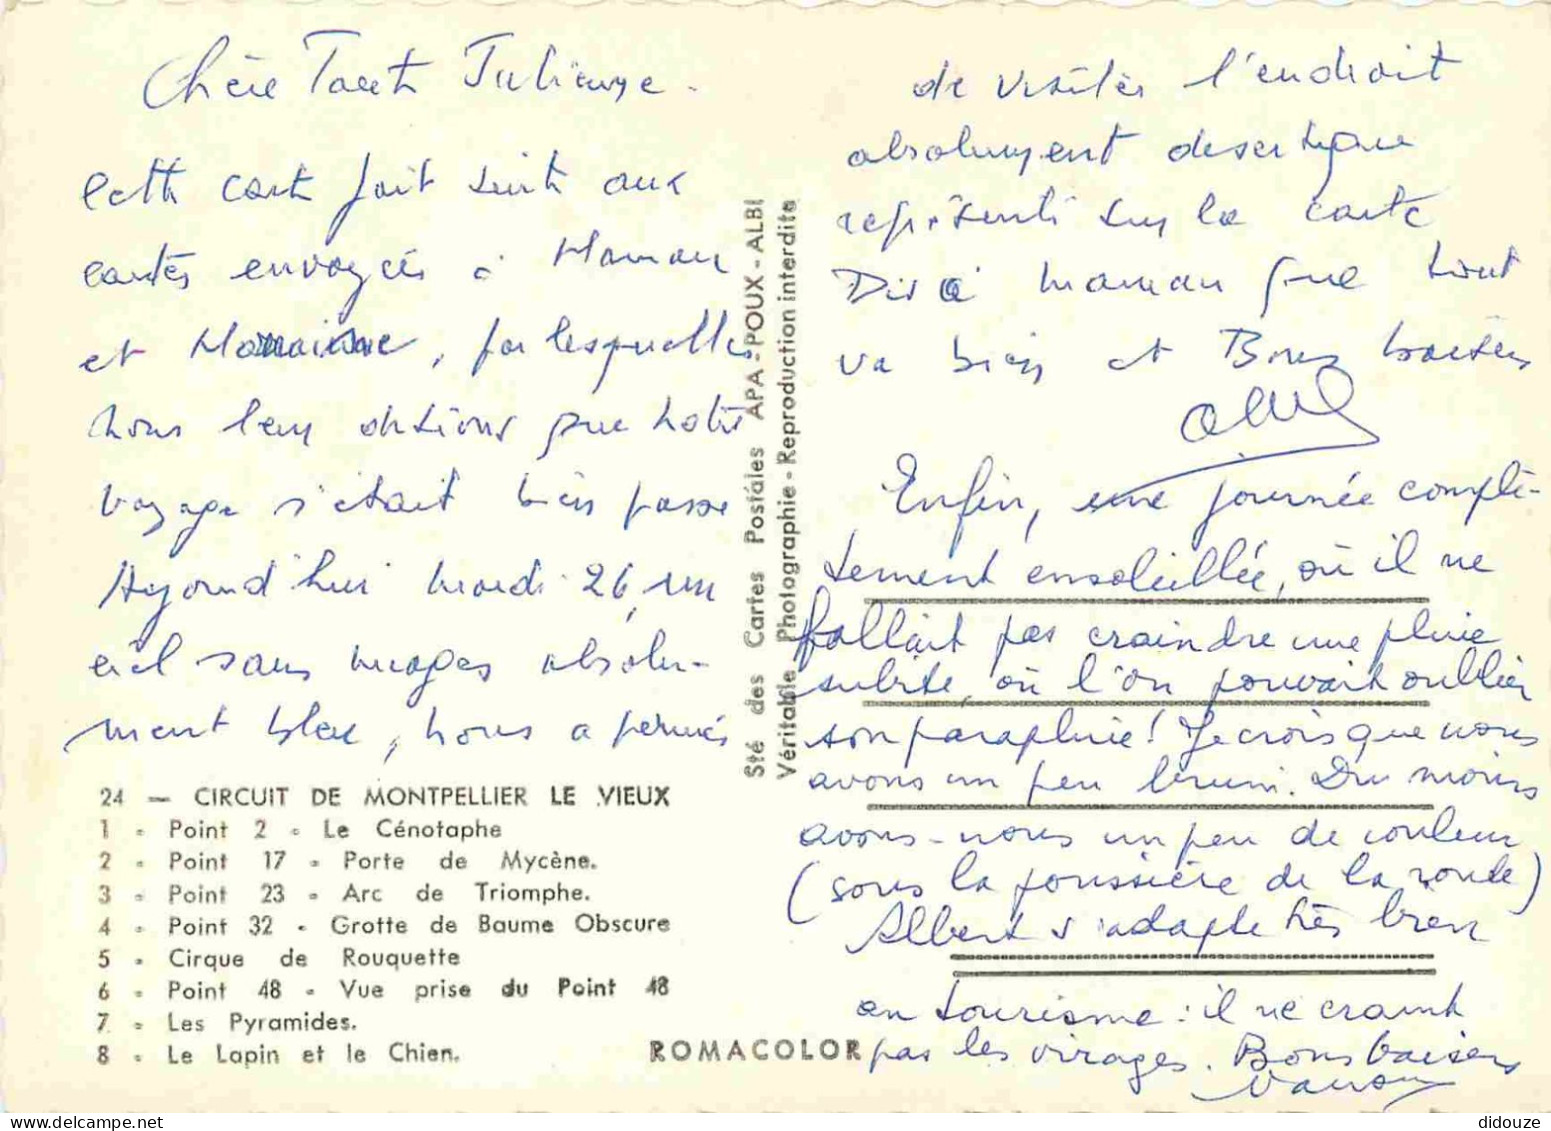 Chère Tante Julienne.
Cette carte fait suite aux
cartes envoyées à Maman
et, par lesquelles
nous leur disions que notre
voyage s'était bien passé
Aujourd'hui mardi 26, un
ciel sans nuages absolu-
ment bleu, nous a permis
24 - CIRCUIT DE MONTPELLIER LE VIEUX
1 - Point 2 - Le Cénotaphe
2 - Point 17 - Porte de Mycène.
3 - Point 23 - Arc de Triomphe.
4 - Point 32 - Grotte de Baume Obscure
5 - Cirque de Rouquette
6 - Point 48 - Vue prise du Point 48
7 - Les Pyramides.
8 - Le Lapin et le Chien.
Sté des Cartes Postales APA-POUX-ALBI
Véritable Photographie - Reproduction interdite
ROMACOLOR
de visiter l'endroit
absolument desertique
représenté sur la carte
Dis à maman que tout
va bien et Bons baisers
Enfin, une journée complè-
tement ensoleillée, où il ne
fallait pas craindre une pluie
subite, où l'on pouvait oublier
son parapluie! Je crois que nous
avons un peu bruni. Du moins
avons-nous un peu de couleur
(sous la poussière de la route)
Albert s'adapte très bien
en tourisme : il ne craint
pas les virages. Bons baisers
didouze